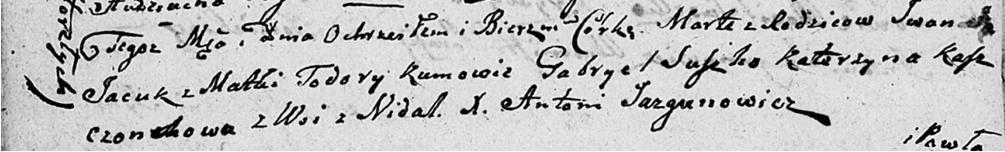 Tegoż Mca i Dnia Ochrzciłem i Bierzm: Córkę Martę z Rodzicow Iwana
Jacuk z Matki Todory Kumowie Gabryel Suszko Katerzyna Kasz
czonkowa z Wsi z Nidal. X. Antoni Jazgunowicz
i Pawła